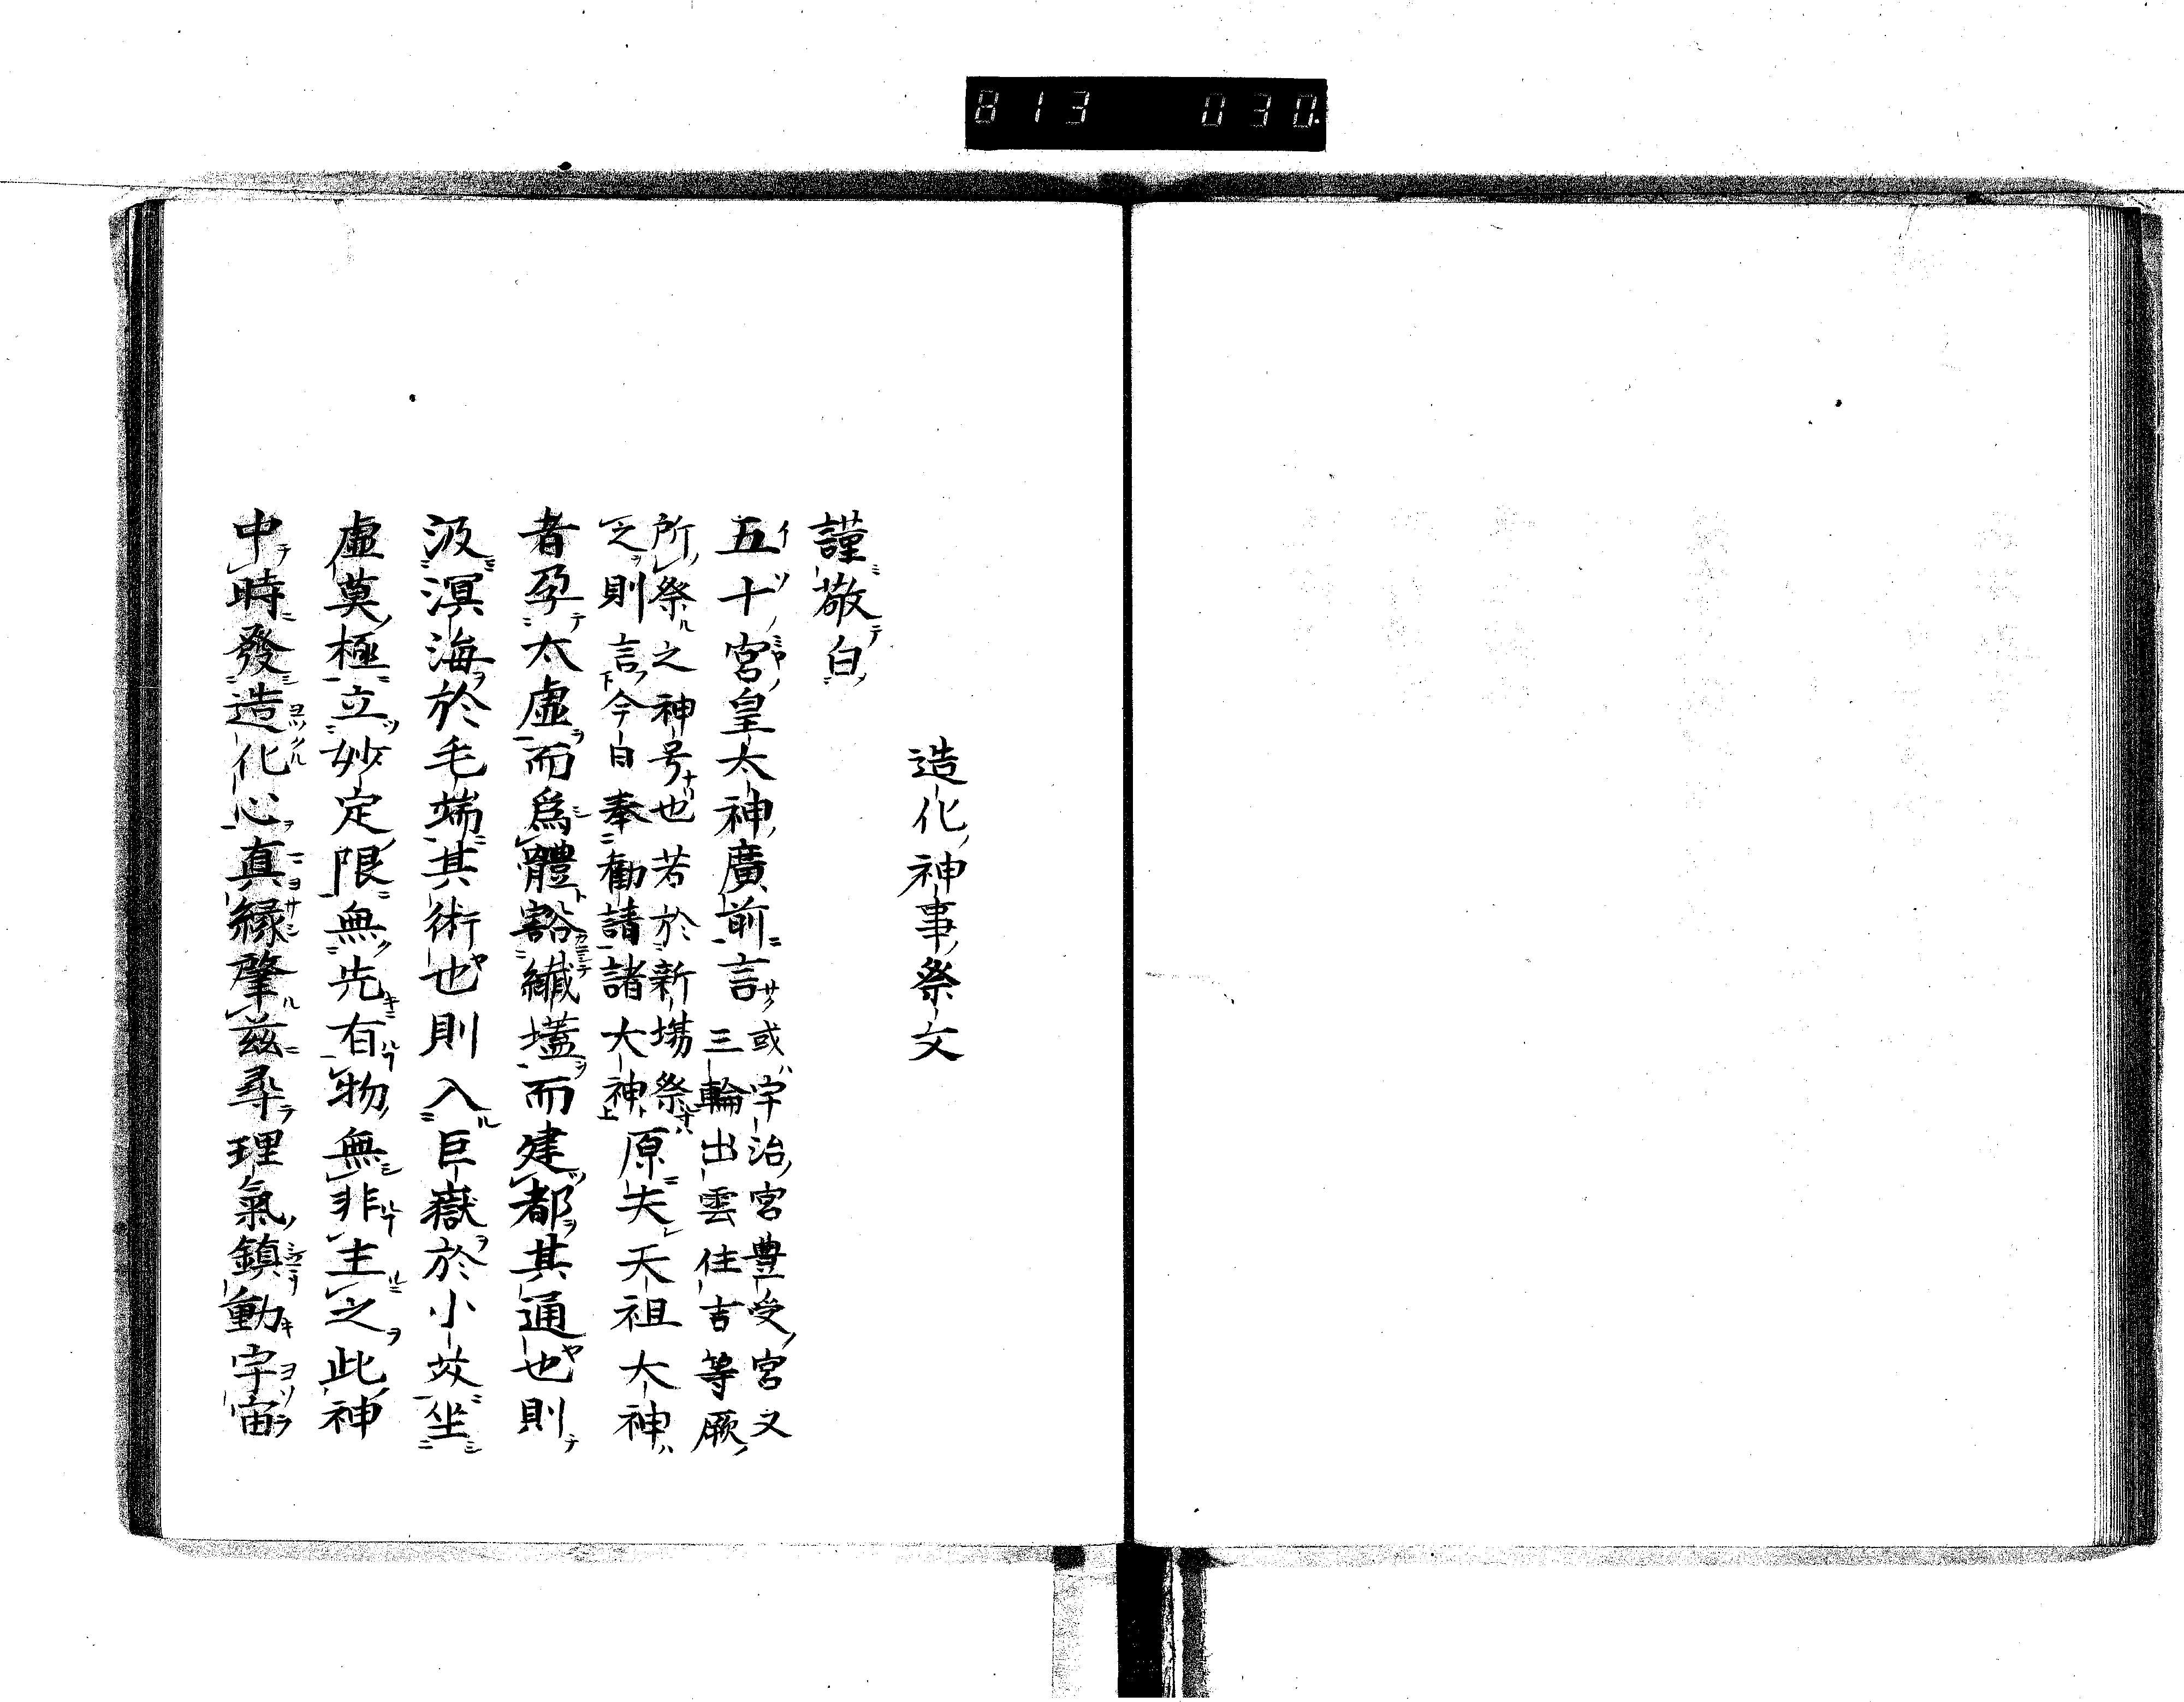 813 030
造化神事祭文
謹敬白
五十宮皇太神廣前言或宇治宮豊受宮又
三輪出雲住吉等厥
所祭之神号也若於新場祭
之則言今日奉勧請諸大神原夫天祖大神
者孕太虚而為體豁纎壒而建都其通也則
汲溟海於毛端其術也則入巨嶽於小芥坐
虚莫極立妙定限無先有物無非主之此神
中時發造化心真縁肇茲尋理氣鎮動宇宙